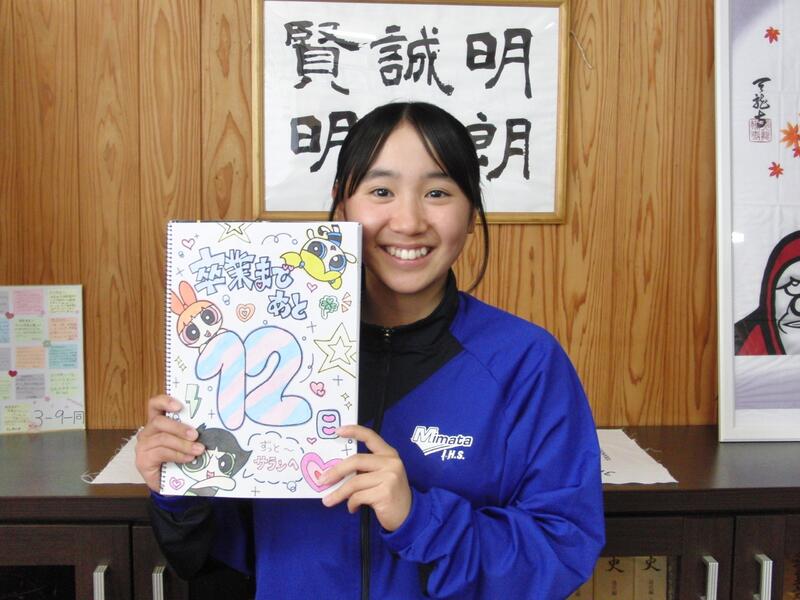 明朗
誠
賢明
卒業まで
あと
12
日
ずっと〜
サランヘ
Mimata
J.H.S.
3-9一同
史
史